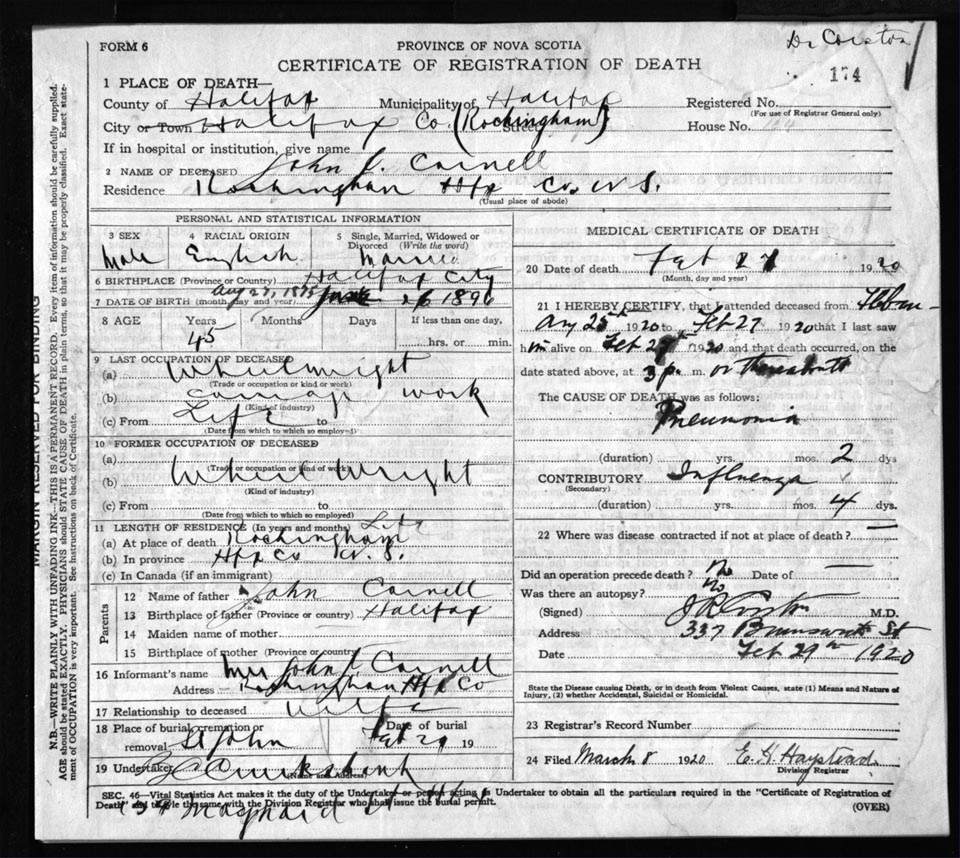 FORM 6
PROVINCE OF NOVA SCOTIA
Dr Corston
CERTIFICATE OF REGISTRATION OF DEATH
174
1 PLACE OF DEATH—
County of Halifax Municipality of Halifax Registered No.
(For use of Registrar General only)
City or Town Halifax Co (Rockingham) Street House No.
If in hospital or institution, give name
2 NAME OF DECEASED John L Carnell
Residence Rockingham Hfx Co. N.S.
(Usual place of abode)
PERSONAL AND STATISTICAL INFORMATION
3 SEX 4 RACIAL ORIGIN 5 Single, Married, Widowed or Divorced (Write the word)
Male English Married
6 BIRTHPLACE (Province or Country) Halifax City
7 DATE OF BIRTH (month, day and year) Aug 27, 1875 26 1896
8 AGE Years Months Days If less than one day,
45 hrs. or min.
9 LAST OCCUPATION OF DECEASED
(a) Wheelwright
(Trade or occupation or kind or work)
(b) Carriage work
(Kind of industry)
(c) From Life to
(Date from which to which so employed)
10 FORMER OCCUPATION OF DECEASED
(a)
(Trade or occupation or kind of work)
(b) Wheel Wright
(Kind of industry)
(c) From to
(Date from which to which so employed)
11 LENGTH OF RESIDENCE (In years and months) Life
(a) At place of death Rockingham
(b) In province Hfx Co N.S.
(c) In Canada (if an immigrant)
Parents
12 Name of father John Carnell
13 Birthplace of father (Province or country) Halifax
14 Maiden name of mother
15 Birthplace of mother (Province or country)
16 Informant's name Mrs John L Carnell
Address Rockingham Hfx Co
17 Relationship to deceased Wife
18 Place of burial, cremation or removal St John Date of burial Feb 29 19
19 Undertaker Cruikshank
(Name and Address)
MEDICAL CERTIFICATE OF DEATH
20 Date of death Feb 27 1920
(Month, day and year)
21 I HEREBY CERTIFY, that I attended deceased from
25th 1920 to Feb 27 1920 that I last saw
him alive on Feb 27th 1920 and that death occurred, on the
date stated above, at 3 p. m. or thereabouts
The CAUSE OF DEATH was as follows:
Pneumonia
(duration) yrs. mos. 2 dys
CONTRIBUTORY Influenza
(Secondary)
(duration) yrs. mos. 4 dys.
22 Where was disease contracted if not at place of death? —
Did an operation precede death? No Date of —
Was there an autopsy? No
(Signed) Corston M.D.
Address 337 Brunswick St
Date Feb 29th 1920
State the Disease causing Death, or in death from Violent Causes, state (1) Means and Nature of Injury, (2) whether Accidental, Suicidal or Homicidal.
23 Registrar's Record Number
24 Filed March 8 1920 E. H.
Division Registrar
SEC. 46—Vital Statistics Act makes it the duty of the Undertaker or person acting as Undertaker to obtain all the particulars required in the "Certificate of Registration of
Death" and to file the same with the Division Registrar who shall issue the burial permit.
(OVER)
Maynard
MARGIN RESERVED FOR BINDING
N.B.—WRITE PLAINLY WITH UNFADING INK—THIS IS A PERMANENT RECORD. Every item of information should be carefully supplied.
AGE should be stated EXACTLY. PHYSICIANS should STATE CAUSE OF DEATH in plain terms, so that it may be properly classified. Exact state-
ment of OCCUPATION is very important. See instructions on back of Certificate.